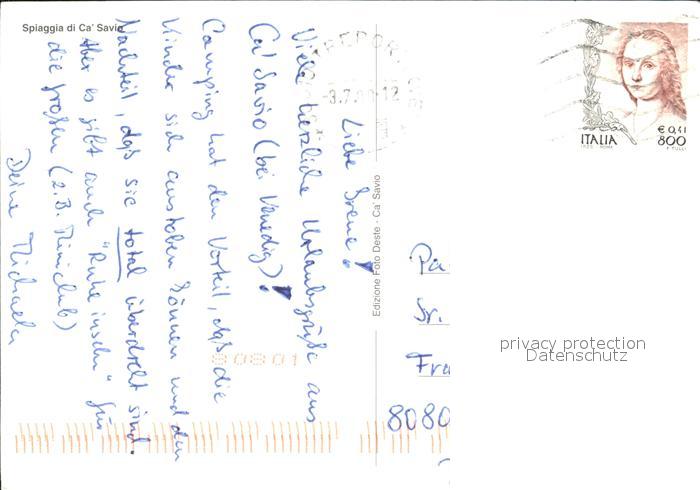 Spiaggia di Ca' Savio
Liebe Irene!
Viele herzliche Urlaubsgrüße aus
Ca' Savio (bei Venedig)!
Camping hat den Vorteil, daß die
Kinder sich austoben können und den
Nachteil, daß sie total überdreht sind.
Aber es gibt auch "Ruheinseln" für
die großen (z.B. Miniclub)
Deine Michaela
Edizione Foto Deste - Ca' Savio
-8.7.  -12
ITALIA
€ 0,41
800
00801
Pa
Fra
8080
privacy protection
Datenschutz